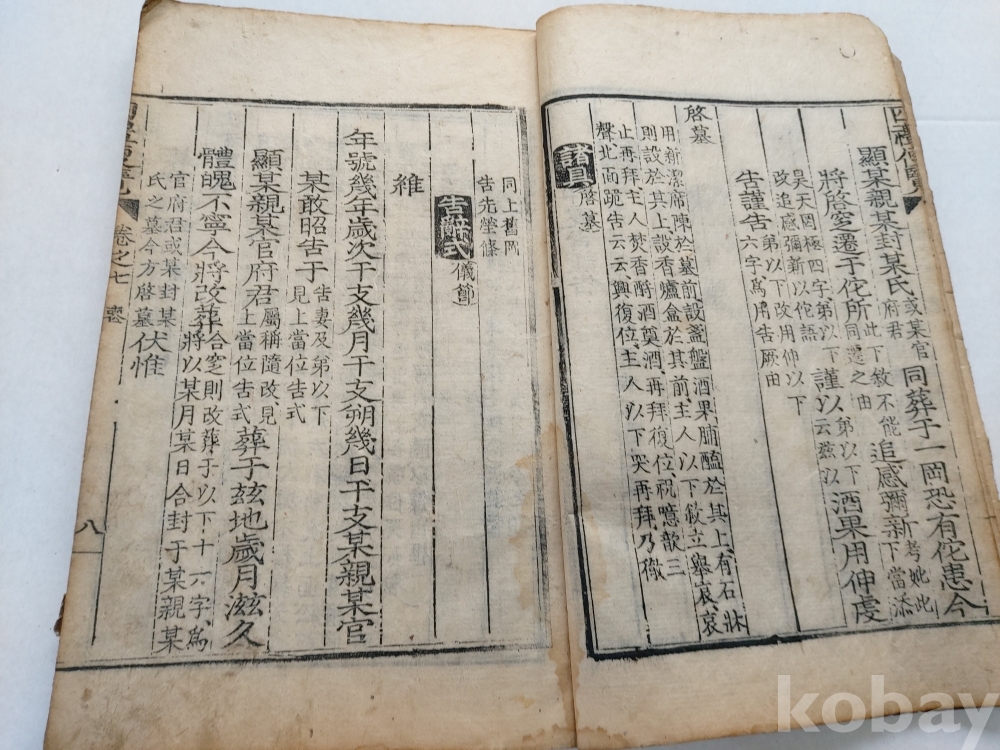 四禮便覽
顯某親某封某氏或某官府君同葬于一岡恐有佗患今
將啓窆遷于佗所此下敘不能同遷之由追感彌新考妣此下當添
昊天罔極四字弟以下改追感彌新以佗語謹以弟以下云茲以酒果用伸虔
告謹告弟以下改用伸以下六字爲用告厥由
啓墓
用新潔席陳於墓前設盞盤酒果脯醢於其上有石牀
則設於其上設香爐盒於其前主人以下敘立舉哀哀
止再拜主人焚香酹酒奠酒再拜復位祝噫歆三
聲北面跪告云云興復位主人以下哭再拜乃徹
諸具啓墓
同上舊岡
告先塋條
告辭式儀節
維
年號幾年歲次干支幾月干支朔幾日干支某親某官
某敢昭告于告妻及弟以下見上當位告式
顯某親某官府君屬稱隨改見上當位告式葬于玆地歲月滋久
體魄不寧今將改葬合窆則改葬于以下十六字爲將以某月某日合封于某親某
官府君或某封某氏之墓今方啓墓伏惟
四禮便覽 卷之七 喪 八
kobay